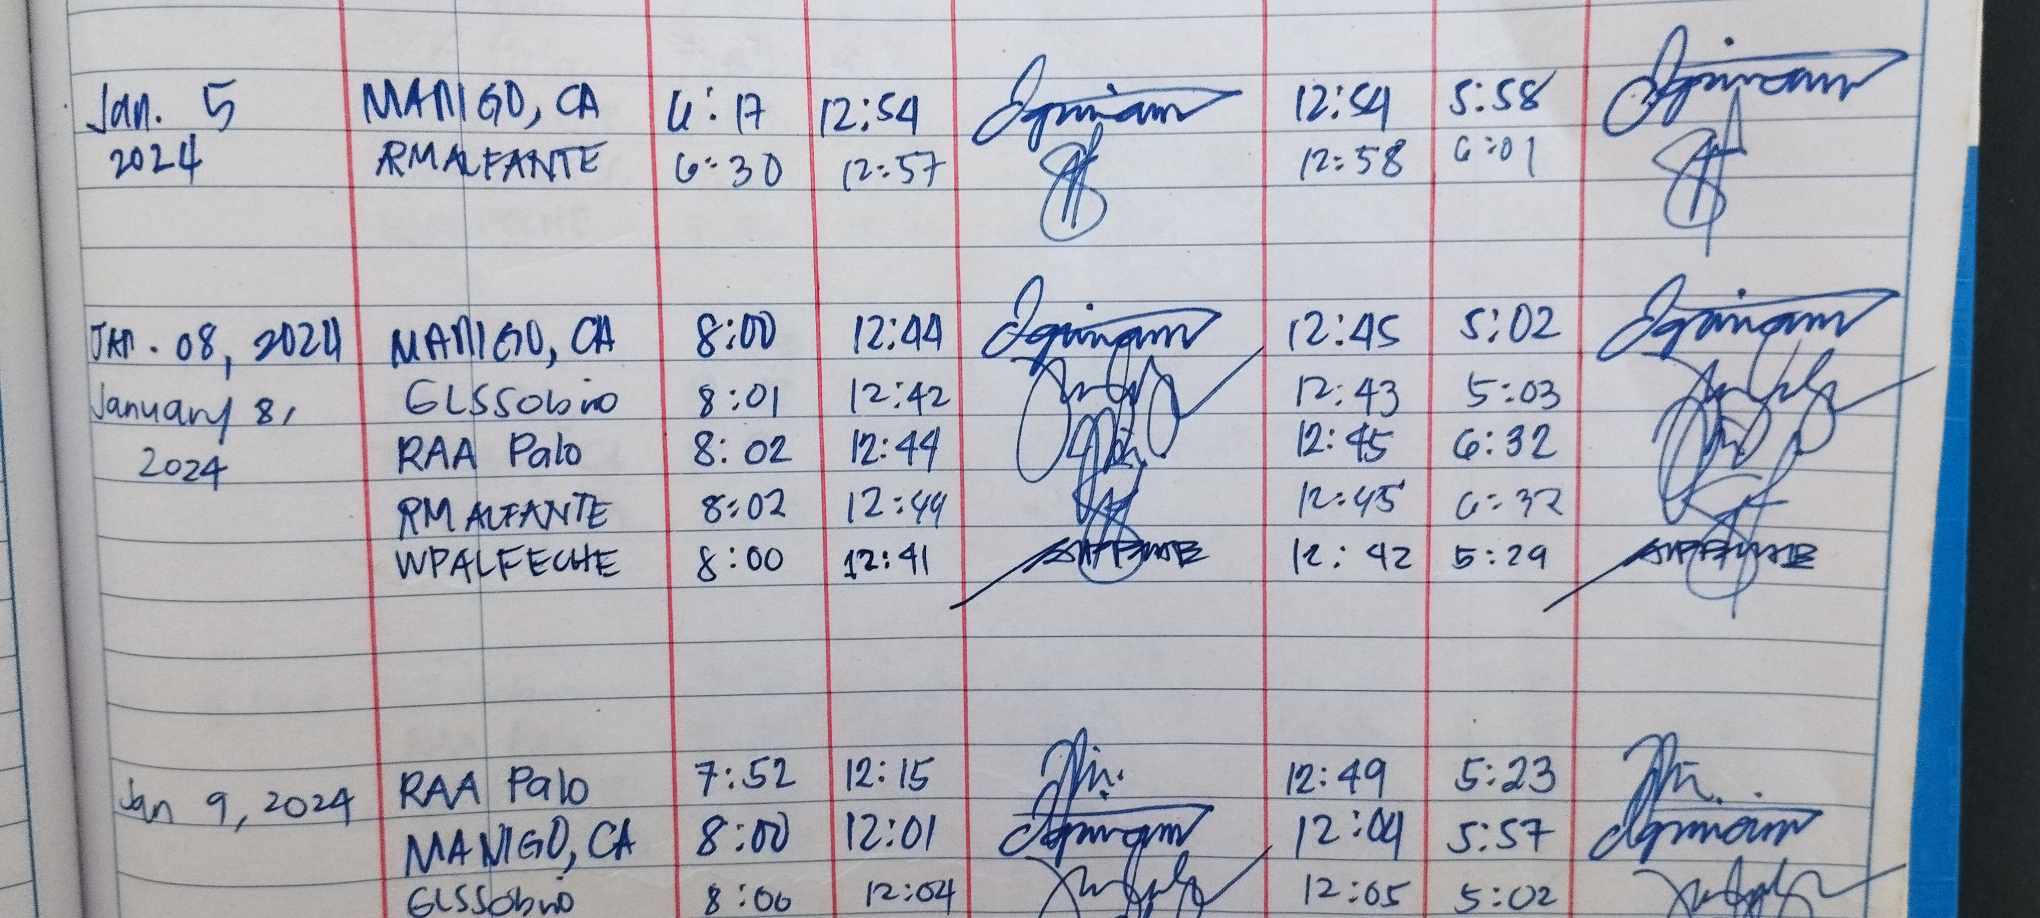 Jan. 5 MANIGO, CA 6:17 12:54 12:54 5:58
2024 RMALFANTE 6:30 12:57 12:58 6:01
JAN. 08, 2024 MANIGO, CA 8:00 12:44 12:45 5:02
January 8, GLSSobrio 8:01 12:42 12:43 5:03
2024 RAA Palo 8:02 12:44 12:45 6:32
RMALFANTE 8:02 12:44 12:45 6:32
WPALFECHE 8:00 12:41 12:42 5:29
Jan 9, 2024 RAA Palo 7:52 12:15 12:49 5:23
MANIGO, CA 8:00 12:01 12:04 5:57
GLSSobrio 8:00 12:04 12:05 5:02